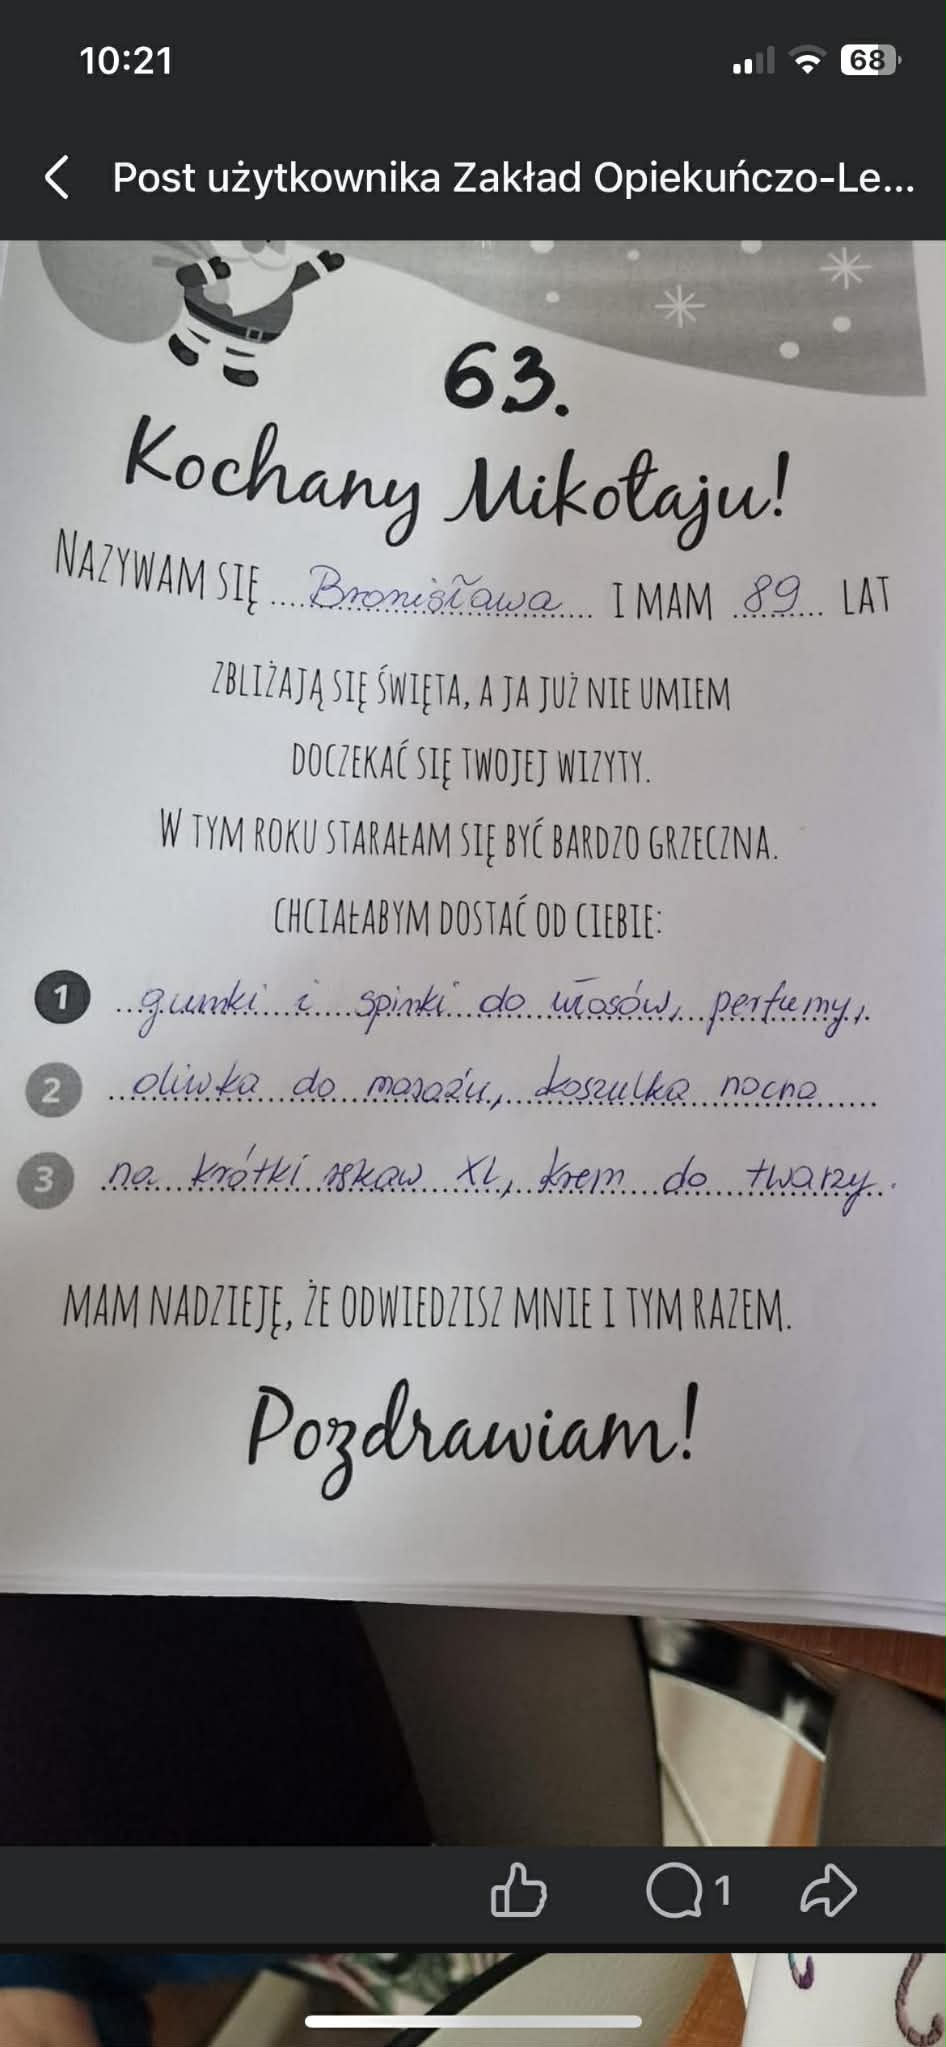 10:21
68
Post użytkownika Zakład Opiekuńczo-Le...
63.
Kochany Mikołaju!
NAZYWAM SIĘ ....Bronisława.... I MAM ..89... LAT
ZBLIŻAJĄ SIĘ ŚWIĘTA, A JA JUŻ NIE UMIEM
DOCZEKAĆ SIĘ TWOJEJ WIZYTY.
W TYM ROKU STARAŁAM SIĘ BYĆ BARDZO GRZECZNA.
CHCIAŁABYM DOSTAĆ OD CIEBIE:
1 gumki i spinki do włosów, perfumy,
2 oliwka do masażu, koszulka nocna
3 na krótki rękaw XL, krem do twarzy.
MAM NADZIEJĘ, ŻE ODWIEDZISZ MNIE I TYM RAZEM.
Pozdrawiam!
1